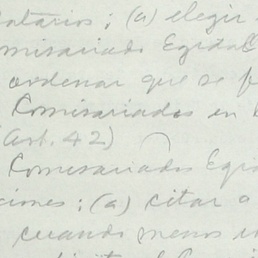 datarios; (a) elegir
misariado Ejidal
ordenar que se f
Comisariados en
(Art. 42)
Comisariados Eji
ciones: (a) citar a
cuando menos